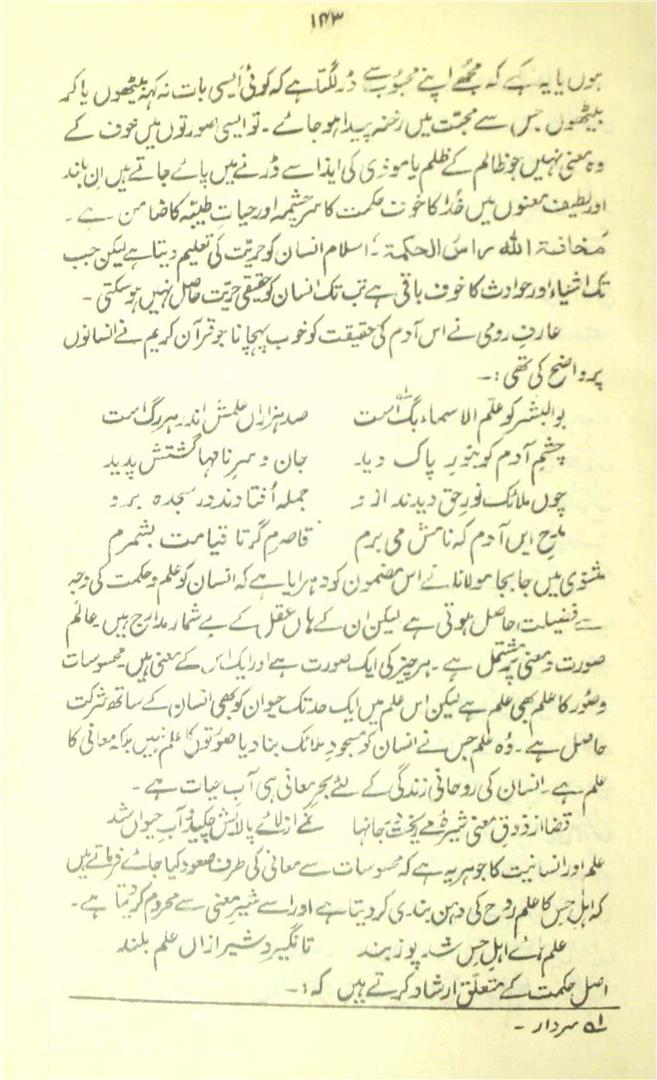 ۱۴۳
ہوں یا یہ ہے کہ مجھے اپنے محبوب سے ڈر لگتا ہے کہ کوئی ایسی بات نہ کہہ بیٹھوں یا کر
بیٹھوں جس سے محبّت میں رخنہ پیدا ہو جائے۔ تو ایسی صورتوں میں خوف کے
وہ معنی نہیں جو ظالم کے ظلم یا موذی کی ایذا سے ڈرنے میں پائے جاتے ہیں ان بلند
اور لطیف معنوں میں خُدا کا خوف حکمت کا سرچشمہ اور حیاتِ طیبّہ کا ضامن ہے۔
مخافۃ اللہ راس الحکمۃ۔ اسلام انسان کو حریّت کی تعلیم دیتا ہے لیکن جب
تک اشیاء اور حوادث کا خوف باقی ہے تب تک انسان کو حقیقی حریّت حاصل نہیں ہو سکتی۔
عارفِ رومی نے اس آدم کی حقیقت کو خوب پہچانا جو قرآن کریم نے انسانوں
پر واضح کی تھی :۔
بوالبشر کو علّم الاسماء بگ است صد ہزاراں علمش اندر ہر رگ است
چشمِ آدم کو بنورِ پاک دید جان و سرِ نامہا گشتش پدید
چوں ملائک نورِ حق دیدند ازو جملہ اُفتادند در سجدہ برو
مدحِ ایں آدم کہ نامش می برم قاصرم گر تا قیامت بشمرم
مثنوی میں جا بجا مولانا نے اس مضمون کو دہرایا ہے کہ انسان کو علم و حکمت کی وجہ
سے فضیلت حاصل ہوتی ہے لیکن ان کے ہاں عقل کے بے شمار مدارج ہیں۔ عالم
صورت و معنی پر مشتمل ہے۔ ہر چیز کی ایک صورت ہے اور ایک اس کے معنی ہیں۔ محسوسات
و صُور کا علم بھی علم ہے لیکن اس علم میں ایک حد تک حیوان کو بھی انسان کے ساتھ شرکت
حاصل ہے۔ وُہ علم جس نے انسان کو مسجودِ ملائک بنا دیا صورتوں کا علم نہیں بلکہ معانی کا
علم ہے۔ انسان کی روحانی زندگی کے لئے بحرِ معانی ہی آبِ حیات ہے۔
قضا از ذوق معنی شیرۂ مے ریخت جانہا نمے از لائے پالائش چکید و آبِ حیواں شد
علم اور انسانیت کا جوہر یہ ہے کہ محسوسات سے معانی کی طرف صعود کیا جائے فرماتے ہیں
کہ اہلِ حس کا علم روح کی دہن بندی کر دیتا ہے اور اسے شیرِ معنی سے محروم کر دیتا ہے۔
علم ہائے اہلِ حِس شد پوز بند تا نگیرد شیر ازاں علم بلند
اصل حکمت کے متعلّق ارشاد کرتے ہیں کہ :۔
لہ سردار۔